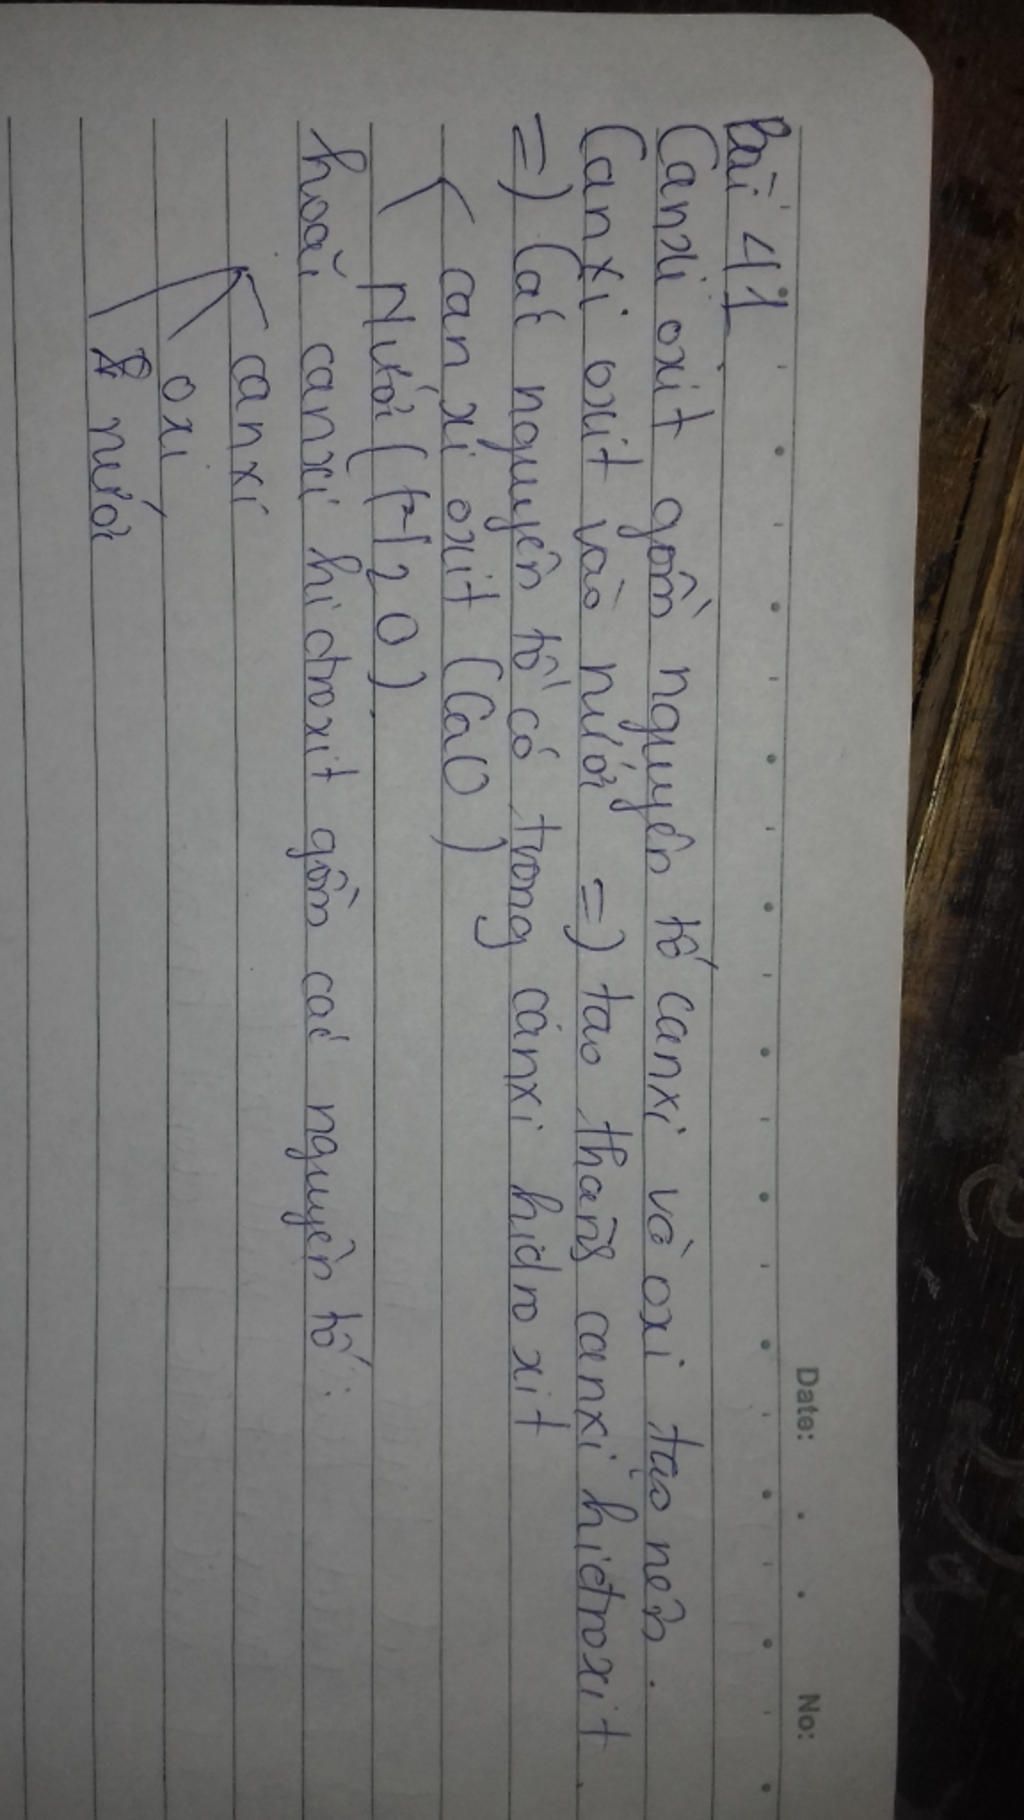 Date: No:
Bài 41
Canxi oxit gồm nguyên tố canxi và oxi tạo nên.
Canxi oxit vào nước =) tạo thành canxi hiđroxit.
=) Các nguyên tố có trong canxi hidroxit
canxi oxit (CaO)
Nước (H2O).
hoặc canxi hiđroxit gồm các nguyên tố:
canxi
oxi
nước